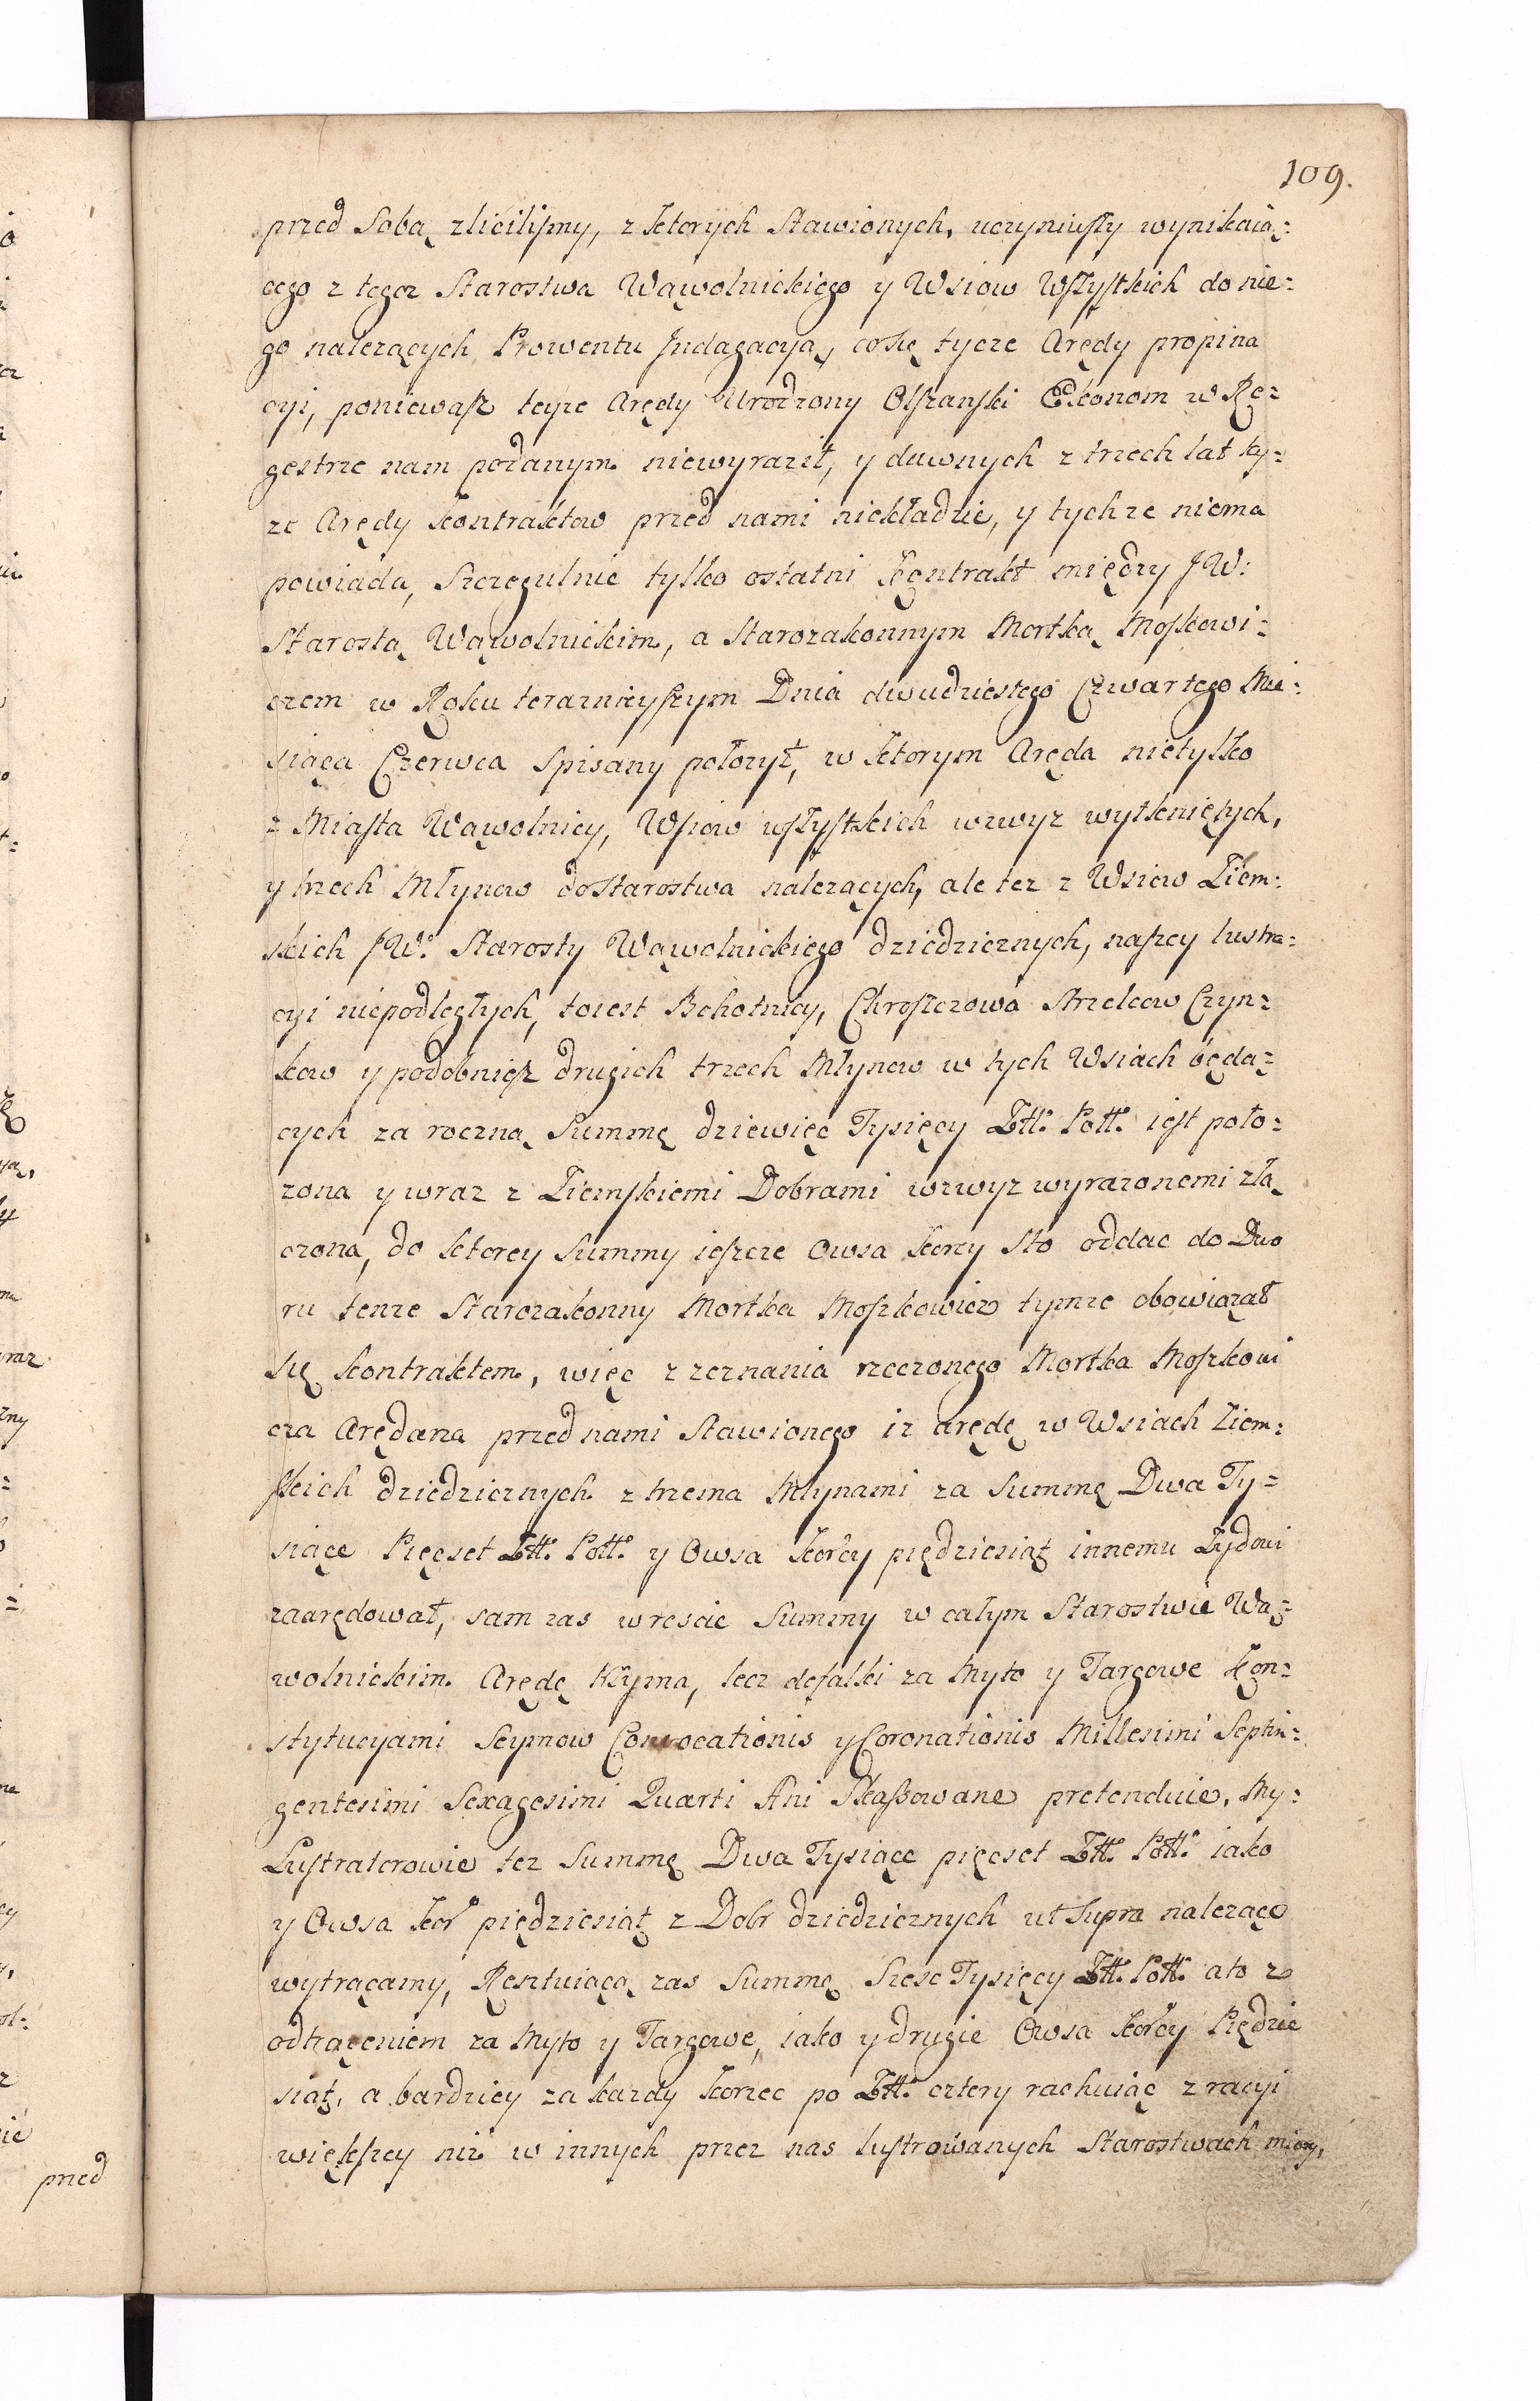 109.
przed Sobą zliczilismy, z ktorych Stawionych, uczyniwszy wynikaią=
cego z tegoz Starostwa Wąwolnickiego y Wsiow Wszystkich do nie=
go nalezących Prowentu Indagacyą, co się tycze Arędy propina
cyi, poniewasz teyze Arędy Urodzony Olszanski Ekonom w Re=
gestrze nam podanym niewyraził, y dawnych z trzech lat ty=
ze Arędy kontraktow przed nami niekładzie, y tychze niema
powiada, Szczegulnie tylko ostatni kontrakt między JW:
Starostą Wąwolnickim, a Starozakonnym Mortką Moskowi=
czem w Roku teraznieyszym Dnia dwudziestego Czwartego Mie=
siąca Czerwca Spisany połozył, w ktorym Aręda nietylko
z Miasta Wąwolnicy, Wsiow wszystkich wzwyz wytkniętych,
y trzech Młynow do Starostwa nalezących, ale tez z Wsiow Ziem=
skich JW. Starosty Wąwolnickiego dziedzicznych, naszey lustra=
cyi niepodległych, toiest Bchotnicy, Chroszczowa Strzelcow Czyn=
kow y podobniesz drugich trzech Młynow w tych Wsiach będą=
cych za roczną Summę dziewięc Tysięcy Złł. Poll. iest poło=
zona y wraz z Ziemskiemi Dobrami wzwyz wyrazonemi złą
czona, do ktorey Summy ieszcze Owsa korcy sto oddac do Dwo
ru tenze Starozakonny Mortka Moszkowicz tymze obowiązał
się kontraktem, więc z zeznania rzeczonego Mortka Moszkowi
cza Arędarza przed nami Stawionego iz arędę w Wsiach Ziem=
skich dziedzicznych z trzema Młynami za Summę Dwa Ty=
siące Pięcset Złł. Poll. y Owsa korcy pięcdziesiąt innemu Zydowi
zaarędował, sam zas w rescie Summy w całym Starostwie Wą=
wolnickim Arędę trzyma, lecz defalki za Myto y Targowe kon=
stytucyami Seymow Convocationis y Coronationis Millesimi Septin=
gentesimi Sexagesimi Quarti Ani Skassowane pretenduie, My=
Lustratorowie tez Summę Dwa Tysiące pięcset Złł. Poll. iako
y Owsa kor. pięcdziesiąt z Dobr dziedzicznych ut Supra nalezące
wytrącamy, Resztuiącą zas Summę Szesc Tysięcy Złł. Poll. a to z
odtrąceniem za Myto y Targowe, iako y drugie Owsa korcy Pięcdzie
siąt, a bardziey za kazdy korzec po Złł. cztery rachuiąc z racyi
większey niz w innych przez nas lustrowanych Starostwach miary,
przed